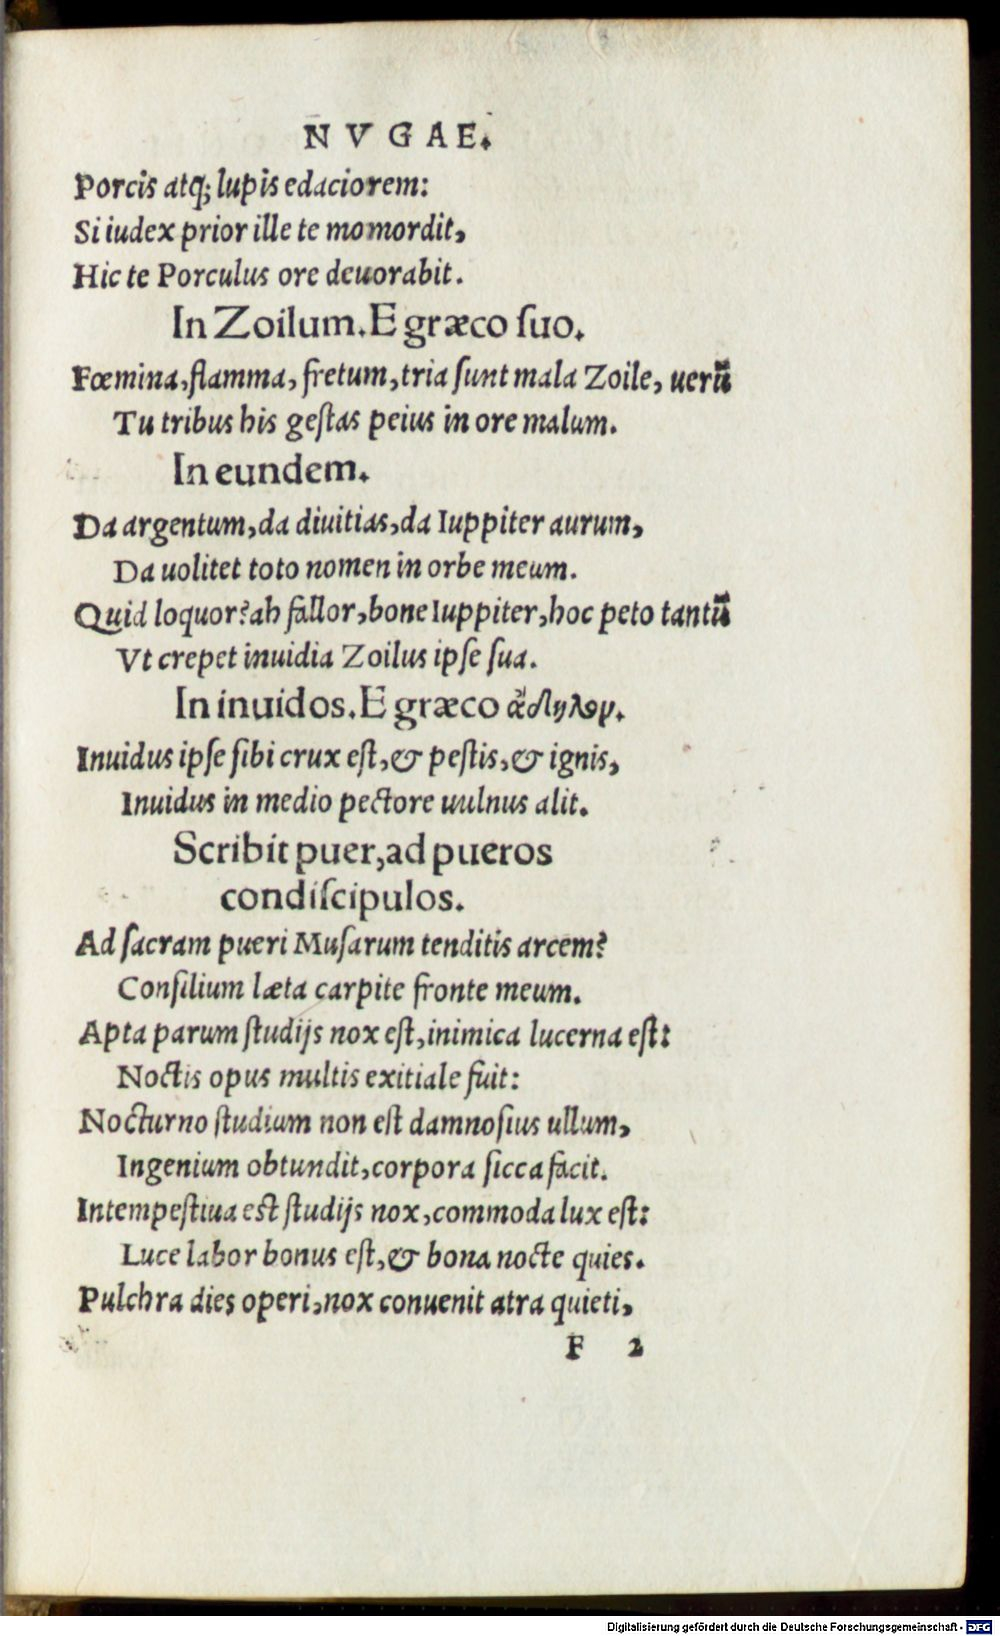 NVGAE.
Porcis atq; lupis edaciorem:
Si iudex prior ille te momordit,
Hic te Porculus ore deuorabit.
In Zoilum. E græco ſuo.
Fœmina, flamma, fretum, tria ſunt mala Zoile, uerũ
Tu tribus his geſtas peius in ore malum.
In eundem.
Da argentum, da diuitias, da Iuppiter aurum,
Da uolitet toto nomen in orbe meum.
Quid loquor? ah fallor, bone Iuppiter, hoc peto tantũ
Vt crepet inuidia Zoilus ipſe ſua.
In inuidos. E græco ἄδηλον.
Inuidus ipſe ſibi crux eſt, & peſtis, & ignis,
Inuidus in medio pectore uulnus alit.
Scribit puer, ad pueros
condiſcipulos.
Ad ſacram pueri Muſarum tenditis arcem?
Conſilium læta carpite fronte meum.
Apta parum ſtudijs nox eſt, inimica lucerna eſt:
Noctis opus multis exitiale fuit:
Nocturno ſtudium non eſt damnoſius ullum,
Ingenium obtundit, corpora ſicca facit.
Intempeſtiua eſt ſtudijs nox, commoda lux eſt:
Luce labor bonus eſt, & bona nocte quies.
Pulchra dies operi, nox conuenit atra quieti,
F 2
Digitalisierung gefördert durch die Deutsche Forschungsgemeinschaft - DFG